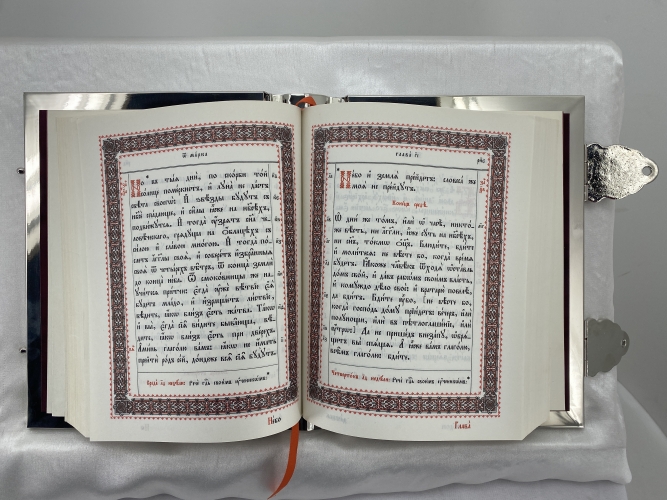 Ѿ ма́рка
Но въ ты̑ѧ дни̑, по ско́рби то́й,
со́лнце поме́ркнетъ, и҆ лꙋна̀ не да́стъ
свѣ́та своегѡ̀: И҆ ѕвѣ́зды бꙋ́дꙋтъ съ
нб҃сѐ спа́дающѧ, и҆ си̑лы ꙗ҆̀же на нб҃сѣ́хъ,
подви́жꙋтсѧ. И҆ тогда̀ ᲂу҆́зрѧтъ сн҃а че-
ловѣ́ческаго, грѧдꙋ́ща на ѡ҆́блацѣхъ съ
си́лою и҆ сла́вою мно́гою. И҆ тогда̀ по́-
слетъ а҆́гг҃лы своѧ̑, и҆ собере́тъ и҆збра̑нныѧ
своѧ̑ ѿ четы́рехъ вѣ̑тръ, ѿ конца̀ землѝ
до конца̀ не́ба. Ѿ смоко́вницы же на-
ᲂучи́тесѧ при́тчи: є҆гда̀ ᲂу҆жѐ вѣ́твїе є҆ѧ̀
бꙋ́детъ мла́до, и҆ и҆зраща́етъ ли́ствїе,
вѣ́дите, ꙗ҆́кѡ бли́з̾ є҆́сть жа́тва: Та́кѡ
и҆ вы̀, є҆гда̀ сїѧ̑ ви́дите быва̑юща, вѣ́-
дите, ꙗ҆́кѡ бли́з̾ є҆́сть при две́рехъ.
А҆ми́нь гл҃ю ва́мъ: ꙗ҆́кѡ не и҆́мать
прейтѝ ро́дъ се́й, до́ндеже всѧ̑ сїѧ̑ бꙋ́дꙋтъ
Нб҃о
глава̀ г҃і
Нб҃о и҆ землѧ̀ пре́йдетъ: словеса̀ же
моѧ̑ не пре́йдꙋтъ.
Коне́цъ средѣ̀.
Ѡ҆ днѝ же то́мъ, и҆лѝ ѡ҆ часѣ̀, никто́же
вѣ́сть, ни а҆́гг҃ли, и҆̀же сꙋ́ть на нб҃сѣ́хъ,
ни сн҃ъ, то́кмѡ ѻ҆ц҃ъ. Блюди́те, бди́те
и҆ моли́тесѧ: не вѣ́сте бо, когда̀ вре́мѧ
бꙋ́детъ. Ꙗ҆́коже человѣ́къ ѿходѧ̀ ѡ҆ста́вль
до́мъ сво́й, и҆ да́въ рабѡ́мъ свои̑мъ вла́сть,
и҆ комꙋ́ждо дѣ́ло своѐ, и҆ врата́рю повелѣ̀,
да бди́тъ. Бди́те ᲂу҆̀бо, [не вѣ́сте бо,
когда̀ госпо́дь до́мꙋ прїи́детъ, ве́черъ, и҆лѝ
полꙋ́нощи, и҆лѝ въ пѣтлоглаше́нїе, и҆лѝ
ᲂу҆́трѡ:] Да не прише́дъ внеза́пꙋ, ѡ҆брѧ́-
щетъ вы̀ спѧ́щѧ. А҆ ꙗ҆̀же ва́мъ гл҃ю,
всѣ̑мъ гл҃ю: бди́те.
Глава̀